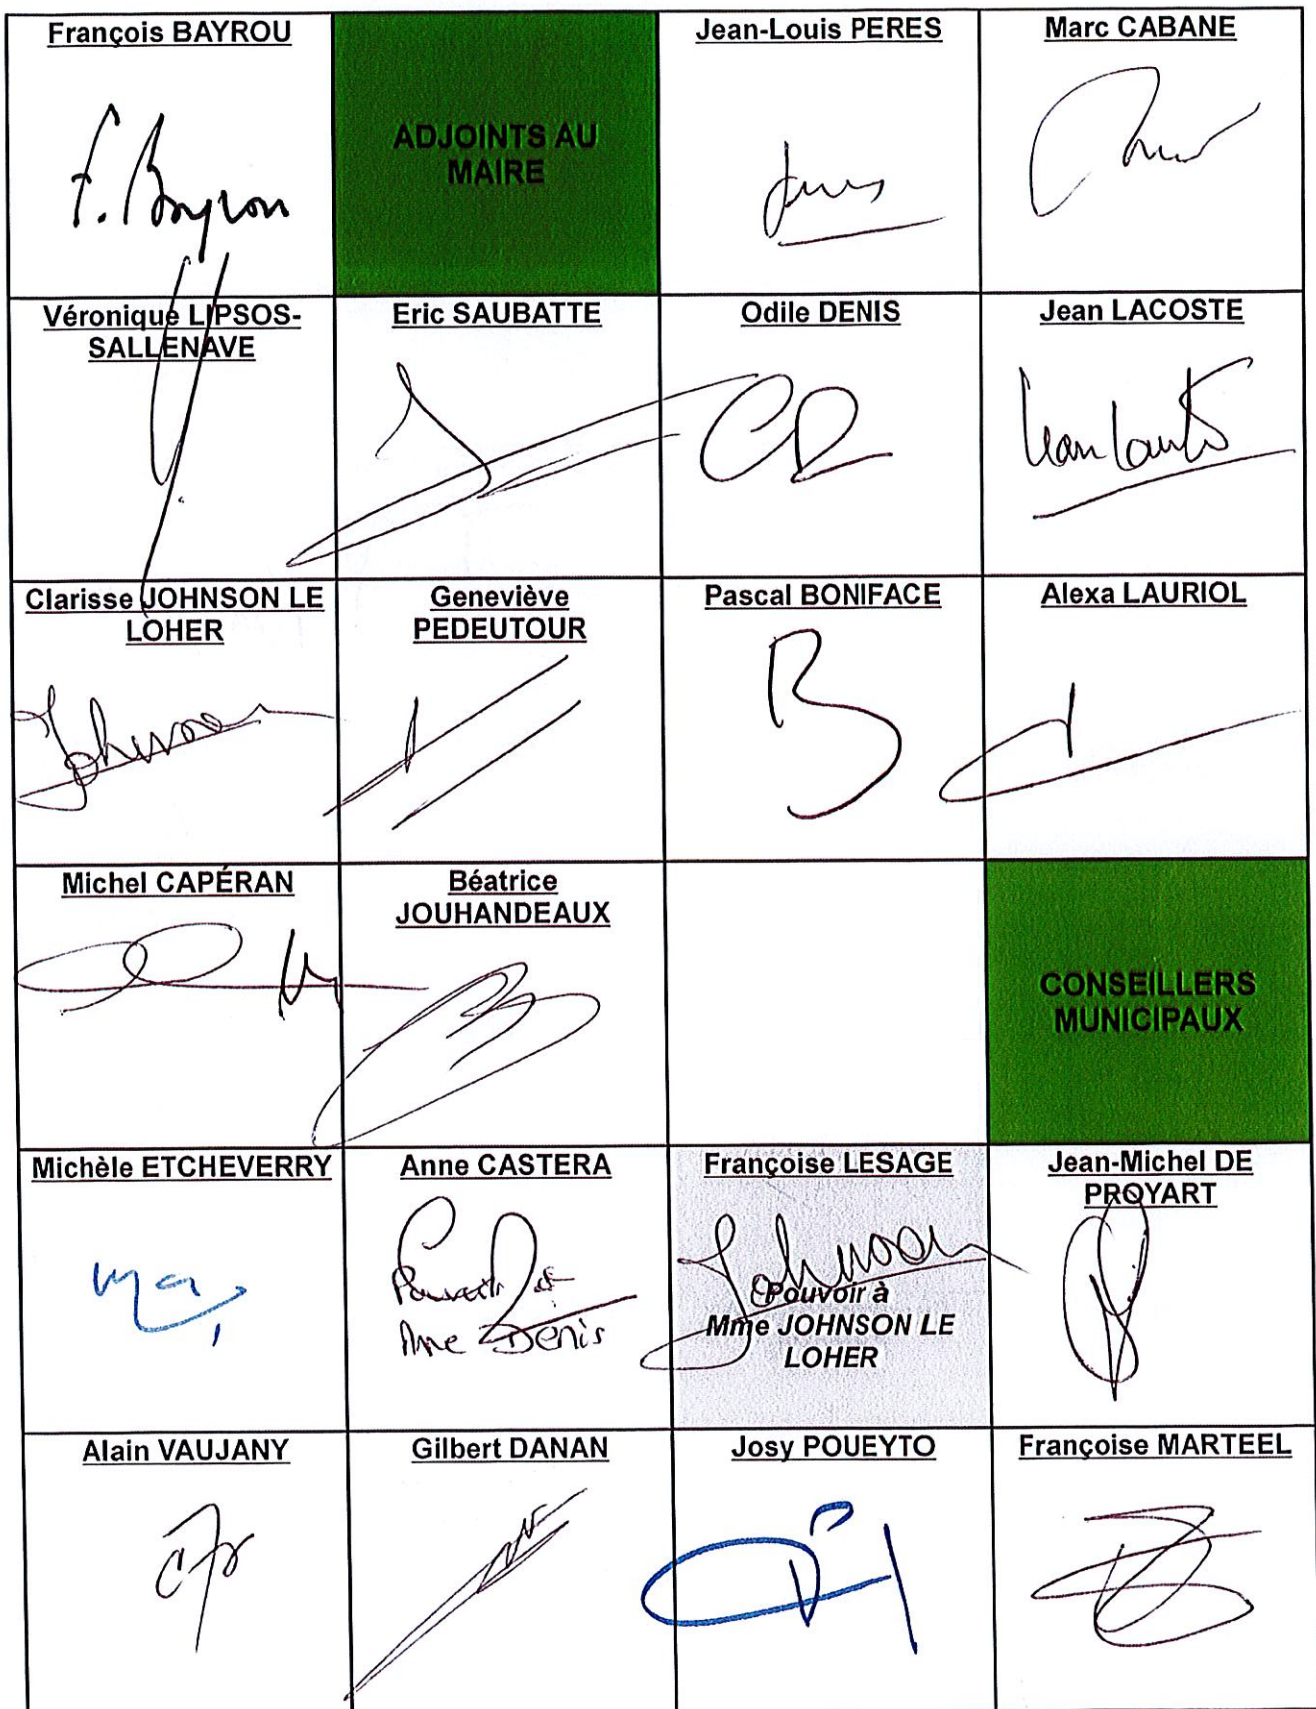 François BAYROU
F. Bayrou
ADJOINTS AU
MAIRE
Jean-Louis PERES
Marc CABANE
Véronique LIPSOS-
SALLENAVE
Eric SAUBATTE
Odile DENIS
Jean LACOSTE
Clarisse JOHNSON LE
LOHER
Johnson
Geneviève
PEDEUTOUR
Pascal BONIFACE
B
Alexa LAURIOL
Michel CAPÉRAN
Béatrice
JOUHANDEAUX
CONSEILLERS
MUNICIPAUX
Michèle ETCHEVERRY
Anne CASTERA
Pouvoir
Denis
Françoise LESAGE
Johnson
Pouvoir à
Mme JOHNSON LE
LOHER
Jean-Michel DE
PROYART
Alain VAUJANY
Gilbert DANAN
Josy POUEYTO
Françoise MARTEEL